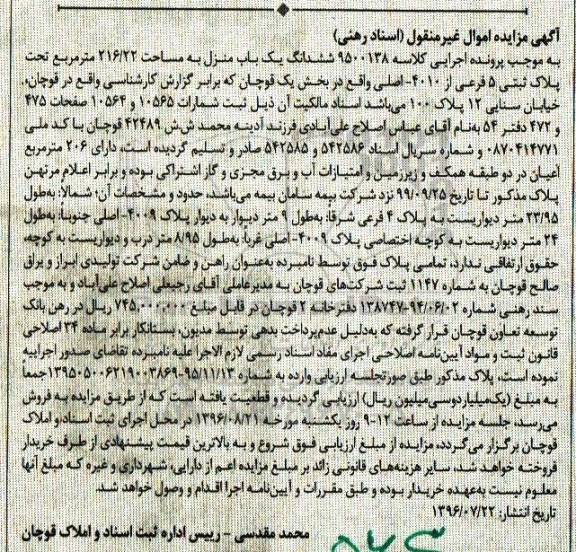 آگهی مزایده اموال غیرمنقول (اسناد رهنی)
به موجب پرونده اجرایی کلاسه ۹۵۰۰۱۳۸ ششدانگ یک باب منزل به مساحت ۲۱۶/۲۲ مترمربع تحت
پلاک ثبتی ۵ فرعی از ۴۰۱۰- اصلی واقع در بخش یک قوچان که برابر گزارش کارشناسی واقع در قوچان،
خیابان سنایی ۱۲ پلاک ۱۰۰ می‌باشد اسناد مالکیت آن ذیل ثبت شمارات ۱۰۵۶۵ و ۱۰۵۶۴ صفحات ۴۷۵
و ۴۷۲ دفتر ۵۴ به‌نام آقای عباس اصلاح علی‌آبادی فرزند آدینه محمد ش‌ش ۴۲۴۸۹ قوچان با کد ملی
۰۸۷۰۴۱۴۷۷۱ و شماره سریال اسناد ۵۴۲۵۸۶ و ۵۴۲۵۸۵ صادر و تسلیم گردیده است، دارای ۲۰۶ مترمربع
اعیان در دو طبقه همکف و زیرزمین و امتیازات آب و برق مجزی و گاز اشتراکی بوده و برابر اعلام مرتهن
پلاک مذکور تا تاریخ ۹۹/۰۹/۲۵ نزد شرکت بیمه سامان بیمه می‌باشد، حدود و مشخصات آن؛ شمالا: به‌طول
۲۳/۹۵ متر دیواریست به پلاک ۴ فرعی شرقا: به‌طول ۹ متر دیوار به دیوار پلاک ۴۰۰۹- اصلی جنوبا: به‌طول
۲۴ متر دیواریست به کوچه اختصاصی پلاک ۴۰۰۹- اصلی غربا: به‌طول ۸/۹۵ متر درب و دیواریست به کوچه،
حقوق ارتفاقی ندارد، تمامی پلاک فوق توسط نامبرده به‌عنوان راهن و ضامن شرکت تولیدی ابزار و یراق
صالح قوچان به شماره ۱۱۴۷ ثبت شرکت‌های قوچان به مدیرعاملی آقای رجبعلی اصلاح علی‌آباد و به موجب
سند رهنی شماره ۹۴/۰۶/۰۲-۱۳۸۷۴۷ دفترخانه ۲ قوچان در قابل مبلغ ۷۴۵,۰۰۰,۰۰۰ ریال در رهن بانک
توسعه تعاون قوچان قرار گرفته که به‌دلیل عدم‌پرداخت بدهی توسط مدیون، بستانکار برابر ماده ۳۴ اصلاحی
قانون ثبت و مواد آیین‌نامه اصلاحی اجرای مفاد اسناد رسمی لازم الاجرا علیه نامبرده تقاضای صدور اجراییه
نموده است، پلاک مذکور طبق صورتجلسه ارزیابی وارده به شماره ۹۵/۱۱/۱۳-۱۳۹۵۰۵۰۰۶۲۱۹۰۰۳۸۶۹ جمعاً
به مبلغ (یک‌میلیاردوسی‌میلیون ریال) ارزیابی گردیده و قطعیت یافته است که از طریق مزایده به فروش
می‌رسد، جلسه مزایده از ساعت ۱۲-۹ روز یکشنبه مورخه ۱۳۹۶/۰۸/۲۱ در محل اجرای ثبت اسناد و املاک
قوچان برگزار می‌گردد، مزایده از مبلغ ارزیابی فوق شروع و به بالاترین قیمت پیشنهادی از طرف خریدار
فروخته خواهد شد، سایر هزینه‌های قانونی زائد بر مبلغ مزایده اعم از دارایی، شهرداری و غیره که مبلغ آنها
معلوم نیست به‌عهده خریدار بوده و طبق مقررات و آیین‌نامه اجرا اقدام و وصول خواهد شد.
تاریخ انتشار: ۱۳۹۶/۰۷/۲۲
محمد مقدسی - رییس اداره ثبت اسناد و املاک قوچان